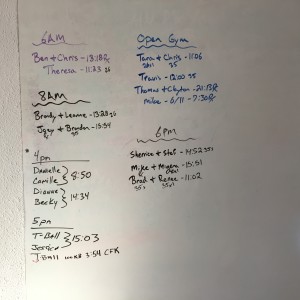 6AM
Ben & Chris - 13:18 Rx
Theresa - 11:23 35
8AM
Brady & Leanne - 13:20 35
Joey & Brandon - 15:54
4pm
Danielle
Camille } 8:50
Dianne
Becky } 14:34
5pm
T-Ball
Jessica } 15:03
J. Ball 3:54 CFK
Open Gym
Tara & Chris - 11:06
35
Travis - 12:00 35
Thomas & Clayton - 21:21 Rx
Mike - 6/11 - 7:30 Rx
6pm
Sherrice & Stef - 14:52 35's
Mike & - 15:51
Brad & Renee - 11:02
35's